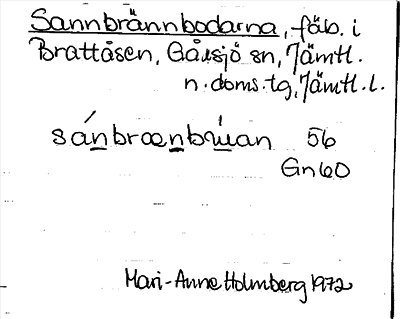 Sannbrännbodarna, fäb. i
Brattåsen, Gåxsjö sn, Jämtl.
n. doms. tg, Jämtl. l.
sánbrænbɯan 56
Gn 60
Mari-Anne Holmberg 1972